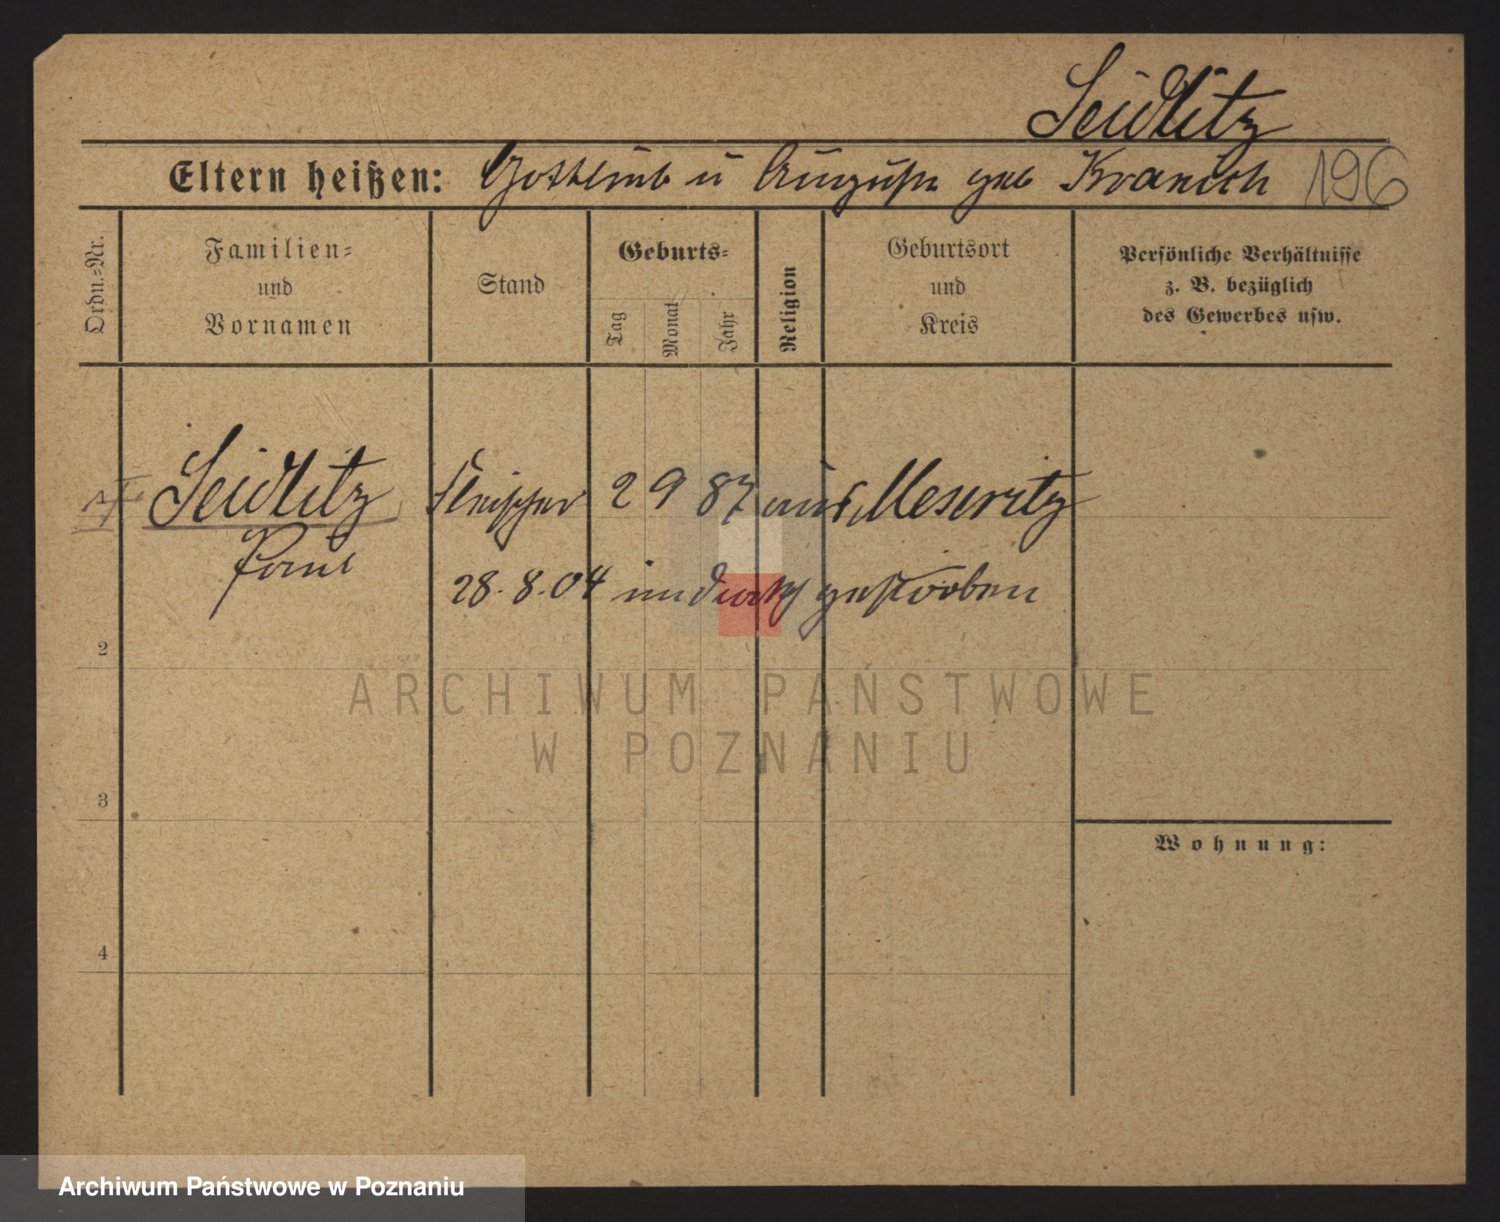 Seidlitz
Eltern heißen: Gottlieb u Auguste geb Kranich 196
Ordn.-Nr.
Familien-
und
Vornamen
Stand
Geburts-
Tag
Monat
Jahr
Religion
Geburtsort
und
Kreis
Persönliche Verhältnisse
z. B. bezüglich
des Gewerbes usw.
Seidlitz Fleischer 2 9 87 Meseritz
Paul
28.8.04 gestorben
2
ARCHIWUM PAŃSTWOWE
W POZNANIU
3
Wohnung:
4
Archiwum Państwowe w Poznaniu